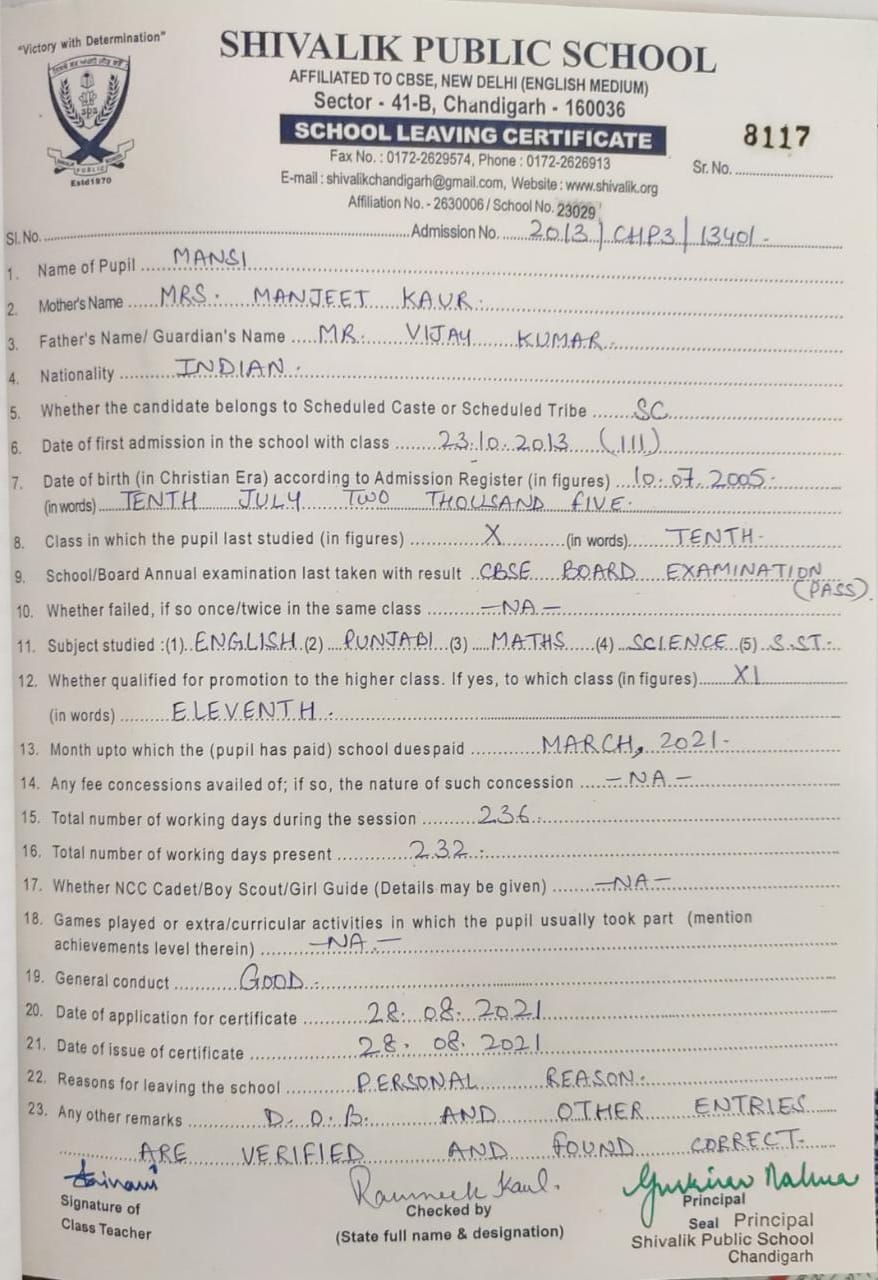 "Victory with Determination"
SHIVALIK PUBLIC SCHOOL
AFFILIATED TO CBSE, NEW DELHI (ENGLISH MEDIUM)
Sector - 41-B, Chandigarh - 160036
SCHOOL LEAVING CERTIFICATE
8117
Fax No. : 0172-2629574, Phone : 0172-2626913
Sr. No.
E-mail : shivalikchandigarh@gmail.com, Website : www.shivalik.org
Estd1970
Affiliation No. - 2630006 / School No. 23029
Sl. No. Admission No. 2013/CHP3/13401.
1. Name of Pupil MANSI
2. Mother's Name MRS. MANJEET KAUR.
3. Father's Name/ Guardian's Name MR. VIJAY KUMAR.
4. Nationality INDIAN.
5. Whether the candidate belongs to Scheduled Caste or Scheduled Tribe SC
6. Date of first admission in the school with class 23.10.2013 (III)
7. Date of birth (in Christian Era) according to Admission Register (in figures) 10.07.2005.
(in words) TENTH JULY TWO THOUSAND FIVE.
8. Class in which the pupil last studied (in figures) X (in words) TENTH-
9. School/Board Annual examination last taken with result CBSE BOARD EXAMINATION
(PASS).
10. Whether failed, if so once/twice in the same class -NA-
11. Subject studied :(1) ENGLISH (2) PUNJABI (3) MATHS (4) SCIENCE (5) S.ST.
12. Whether qualified for promotion to the higher class. If yes, to which class (in figures) XI
(in words) ELEVENTH.
13. Month upto which the (pupil has paid) school duespaid MARCH, 2021-
14. Any fee concessions availed of; if so, the nature of such concession -NA-
15. Total number of working days during the session 236.
16. Total number of working days present 232.
17. Whether NCC Cadet/Boy Scout/Girl Guide (Details may be given) -NA-
18. Games played or extra/curricular activities in which the pupil usually took part (mention
achievements level therein) -NA-
19. General conduct GOOD.
20. Date of application for certificate 28.08.2021
21. Date of issue of certificate 28.08.2021
22. Reasons for leaving the school PERSONAL REASON.
23. Any other remarks D.O.B. AND OTHER ENTRIES
ARE VERIFIED AND FOUND CORRECT.
Signature of
Class Teacher
Checked by
(State full name & designation)
Principal
Seal Principal
Shivalik Public School
Chandigarh